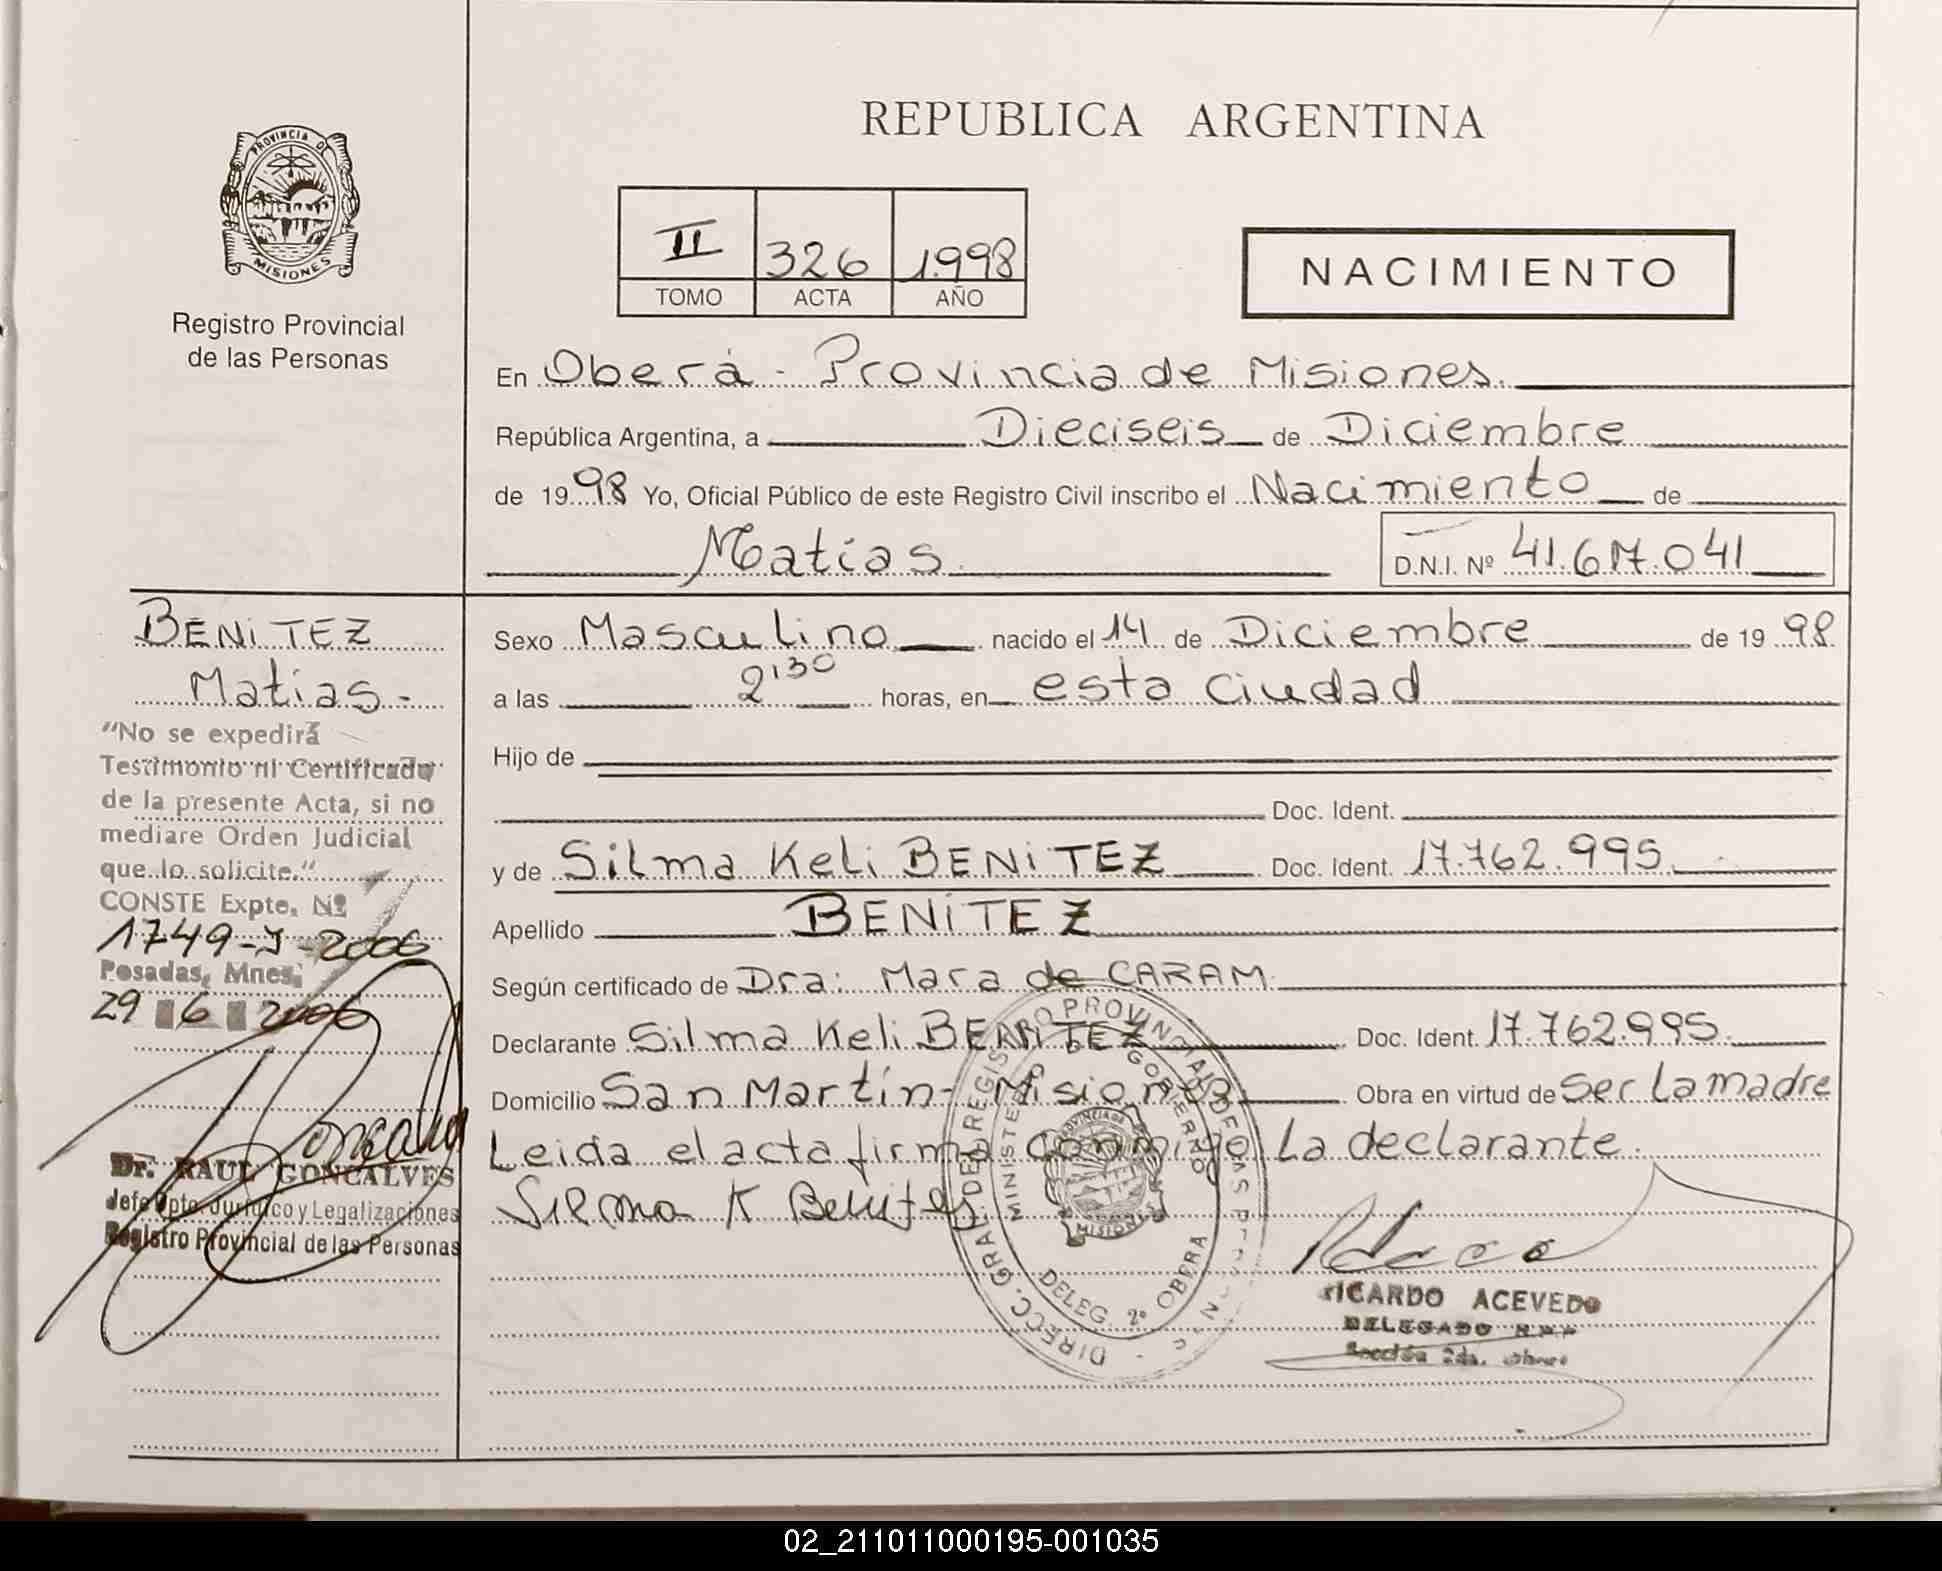 REPUBLICA ARGENTINA
PROVINCIA DE
MISIONES
Registro Provincial
de las Personas
II 326 1.998
TOMO ACTA AÑO
NACIMIENTO
En Oberá - Provincia de Misiones.
República Argentina, a Dieciseis de Diciembre
de 19 98 Yo, Oficial Público de este Registro Civil inscribo el Nacimiento de
Matias
D.N.I. Nº
BENITEZ
Matias.-
"No se expedirá
Testimonio ni Certificado
de la presente Acta, si no
mediare Orden Judicial
que lo solicite."
CONSTE Expte. Nº
1749-J-2006
Posadas, Mnes,
29 6 2006
Dr. RAUL GONCALVES
Jefe Dpto. Jurídico y Legalizaciones
Registro Provincial de las Personas
Sexo Masculino nacido el 14 de Diciembre de 19 98
a las 2'30 horas, en esta Ciudad
Hijo de
Doc. Ident.
y de Silma Keli BENITEZ Doc. Ident. 17.762.995.
Apellido BENITEZ
Según certificado de Dra: Mara de CARAM
Declarante Silma Keli BENITEZ Doc. Ident. 17.762.995.
Domicilio San Martín - Misiones Obra en virtud de Ser La madre
Leida el acta firma conmigo La declarante.
Silma K Benitez
DIRECC. GRAL DEL REGISTRO PROVINCIAL DE LAS
MINISTERIO DE GOBIERNO
PROVINCIA DE
MISIONES
DELEG. 2º OBERA
RICARDO ACEVEDO
DELEGADO
Sección 2da.
02_211011000195-001035